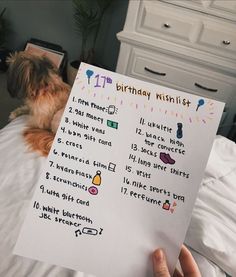 17th birthday wishlist
1. new phone
2. gas money
3. white vans
4. h&m gift card
5. crocs
6. polaroid film
7. hydroflask
8. scrunchies
9. ulta gift card
10. white bluetooth
JBC speaker
11. ukulele
12. black high
top converse
13. socks
14. long sleeve shirts
15. vsrts
16. nike sports bra
17. perfume